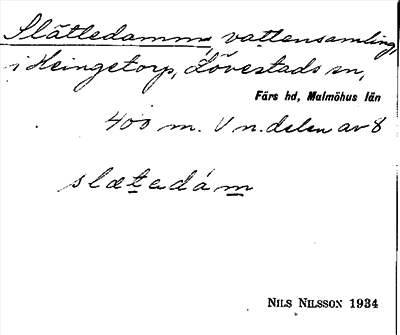 Slättedammn, vattensamling,
i Heingetorp, Lövestads sn,
Färs hd, Malmöhus län
400 m. V n. delen av 8
slætadám
NILS NILSSON 1934